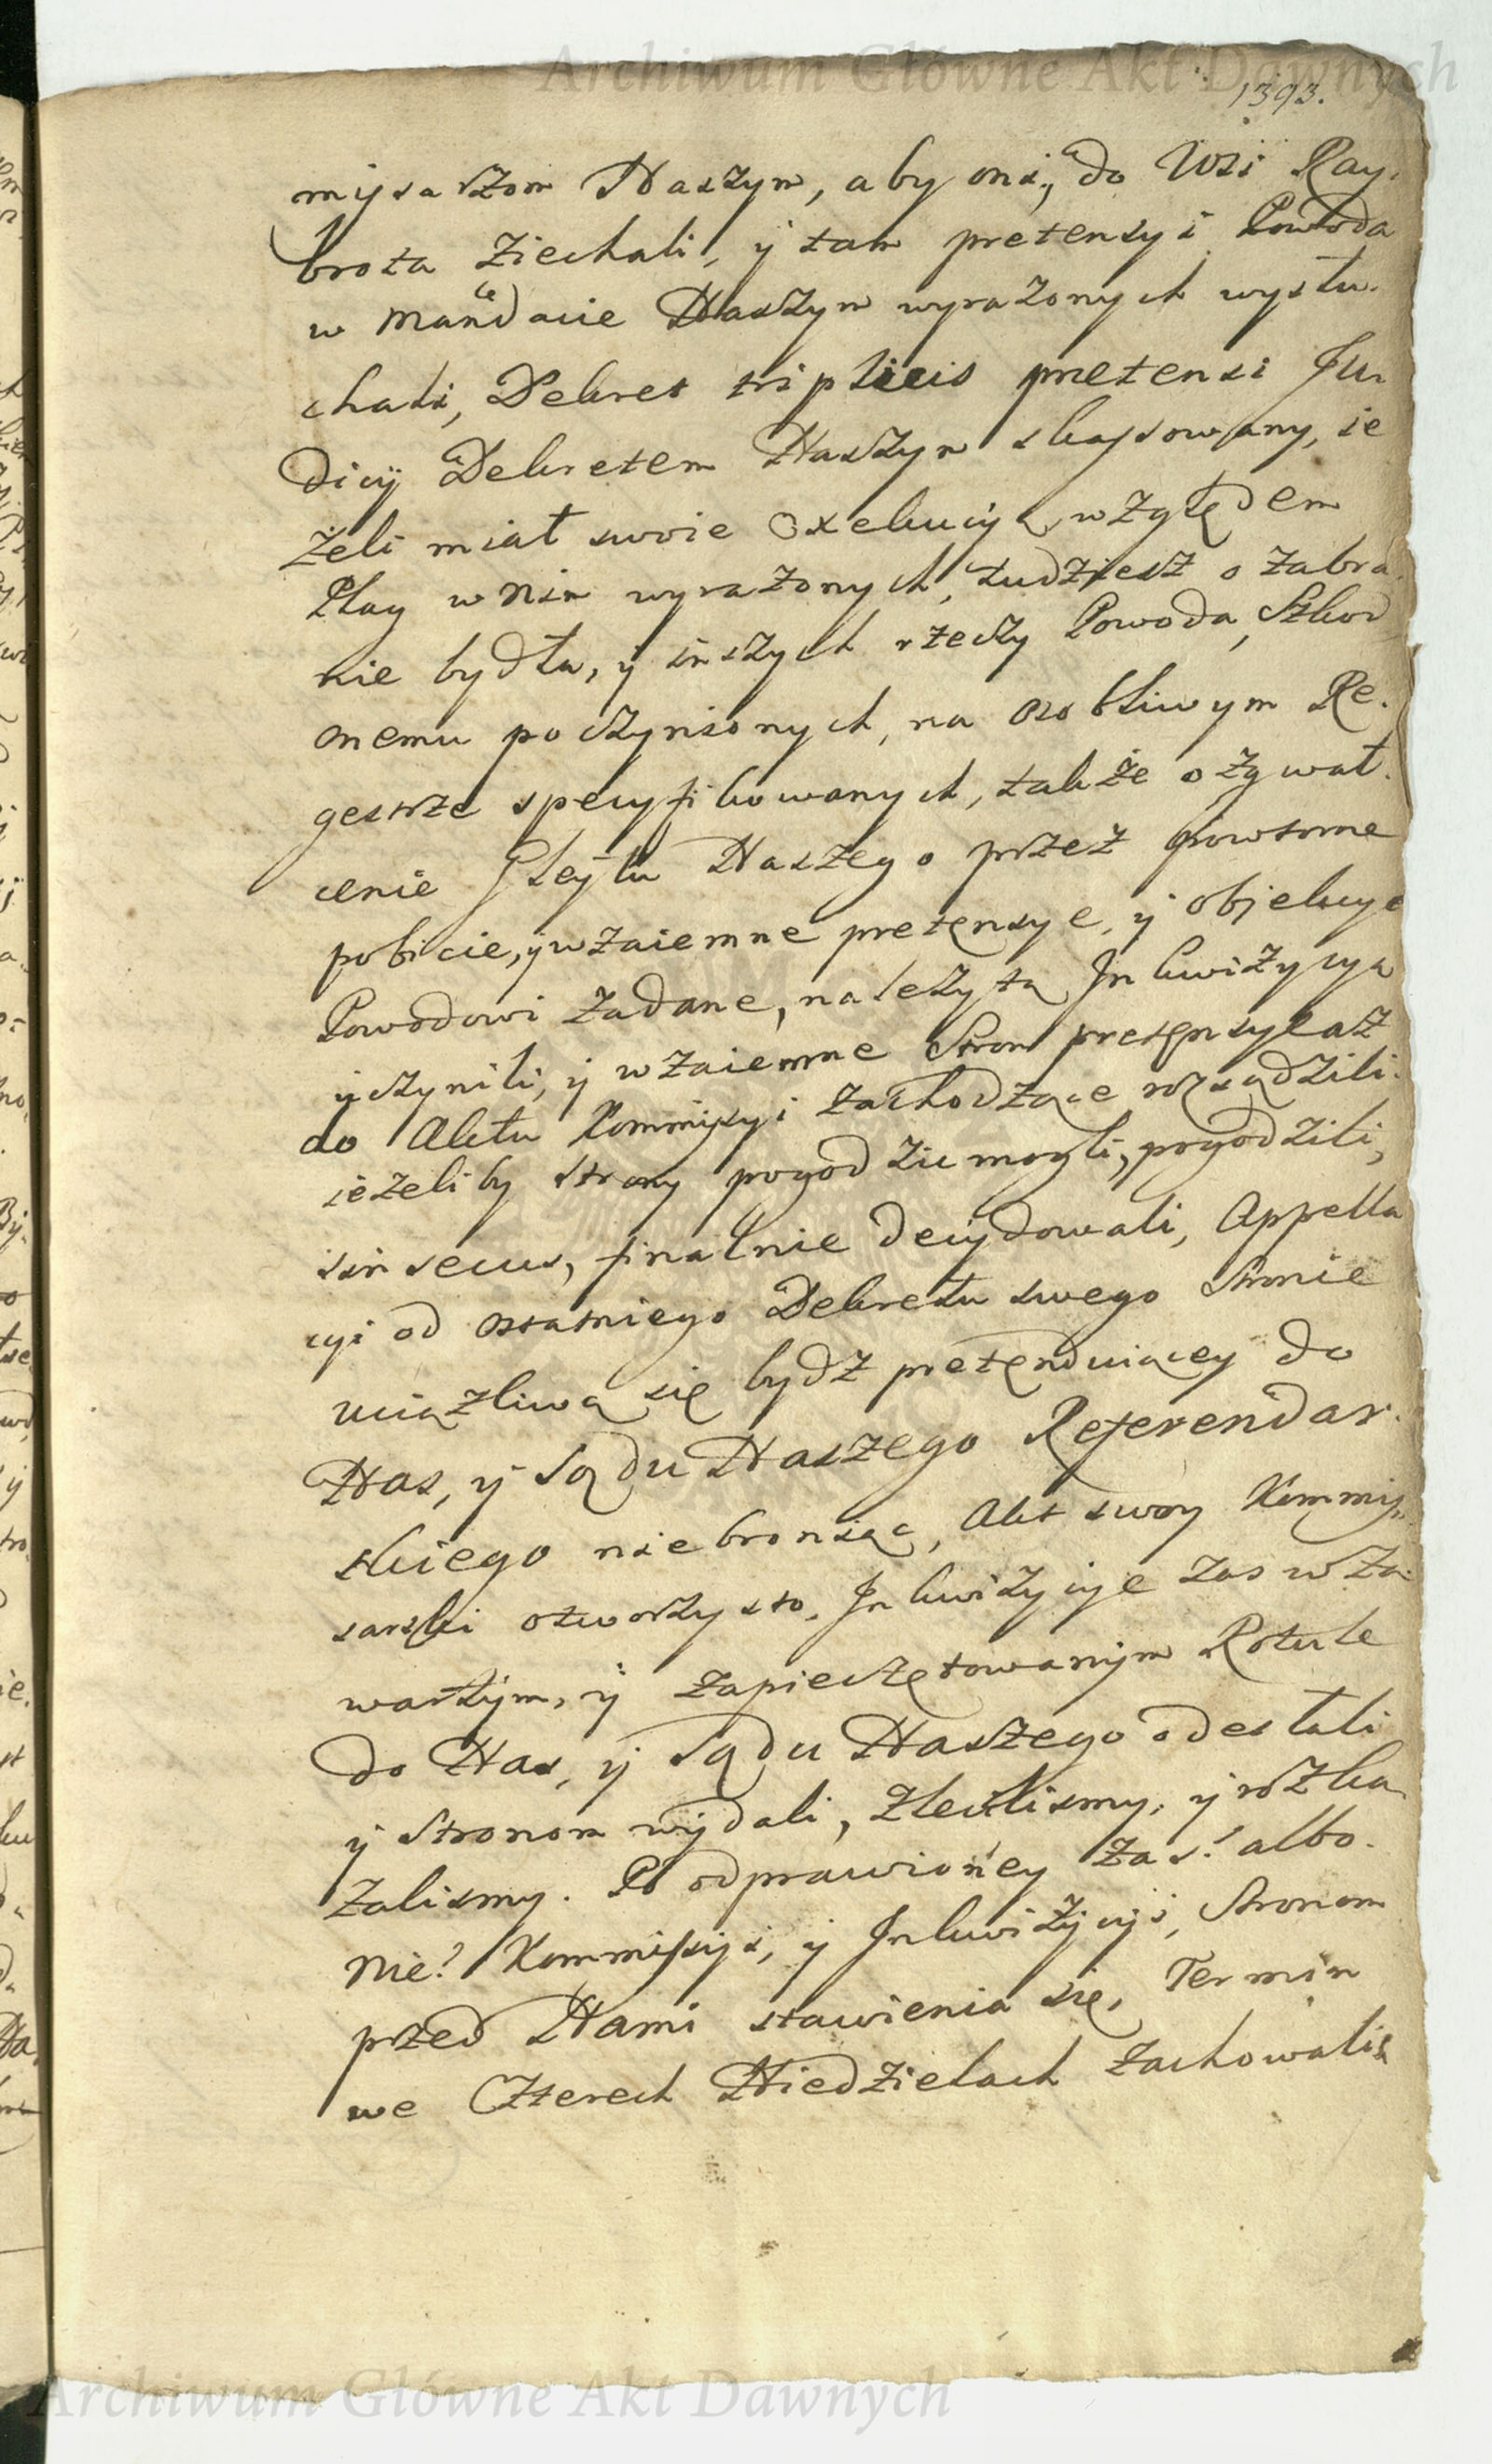 Archiwum Główne Akt Dawnych
1393.
mysarzom Naszym, aby oni, do Wsi Ray.
brota ziechali, y tam pretensyi Powoda
w Mandacie Naszym wyrażonych wysłu.
chali, Dekret triplicis pretensi Ju.
dicij Dekretem Naszym skassowany, ie
żeli miał swoie Exekucyą, względem
Plag w nim wyrażonych, tudziesz o zabra.
nie bydła, y inszych rzeczy Powoda, Szkod
onemu poczynionych, na osobliwym Re.
gestrze specyfikowanych, także o zgwał.
cenie Gleytu Naszego przez powtorne
pobicie, y wzaiemne pretensye, y objekcye
Powodowi zadane, należytą Inkwizycyą
uczynili, y wzaiemne Stron pretensye aż
do Aktu Kommissyi zachodzące rozsądzili.
ieżeliby strony pogodzic mogli, pogodzili,
sin secus, finalnie decydowali, Appella
cyi od ostatniego Dekretu swego Stronie
uciążliwą się bydz pretenduiącey do
Nas, y Sądu Naszego Referendar.
skiego niebroniąc, Akt swoy Kommis.
sarski otworzysto, Inkwizycye zas w za.
wartym, y zapieczętowanym Rotule
do Nas, y Sądu Naszego odesłali
y Stronom wydali, zleciliśmy, y rozka
zaliśmy. Po odprawioney zas? albo.
nie? Kommissyi, y Inkwizycyi, Stronom
przed Nami stawienia się, Termin
we Czterech Niedzielach zachowaliś
Archiwum Główne Akt Dawnych